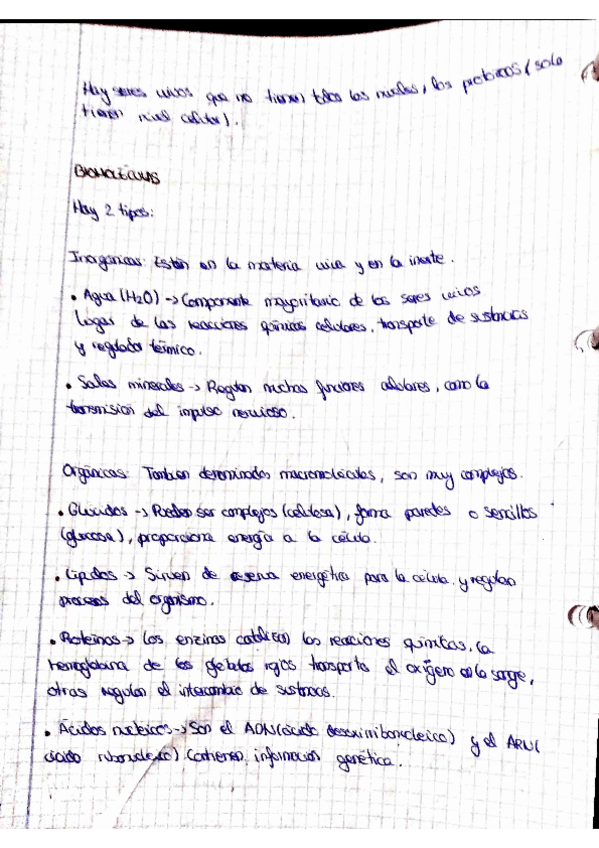 Hay seres vivos que no tienen todos los niveles, los protozoos (solo
tienen nivel celular).
BIOMOLÉCULAS
Hay 2 tipos:
Inorgánicas: Están en la materia viva y en la inerte.
• Agua (H2O) -> Componente mayoritario de los seres vivos
lugar de las reacciones químicas celulares, transporte de sustancias
y regulador térmico.
• Sales minerales -> Regulan muchas funciones celulares, como la
transmisión del impulso nervioso.
Orgánicas: Tambien denominadas macromoléculas, son muy complejos.
• Glúcidos -> Pueden ser complejos (celulosa), forma paredes o sencillos
(glucosa), proporciona energía a la célula.
• Lípidos -> Sirven de reserva energética para la célula y regulan
procesos del organismo.
• Proteínas -> Los enzimas catalizan las reacciones químicas, la
hemoglobina de los glóbulos rojos transporta el oxígeno en la sangre,
otras regulan el intercambio de sustancias.
• Ácidos nucleicos -> Son el ADN (ácido desoxirribonucleico) y el ARN (
ácido ribonucleico). Contienen información genética.